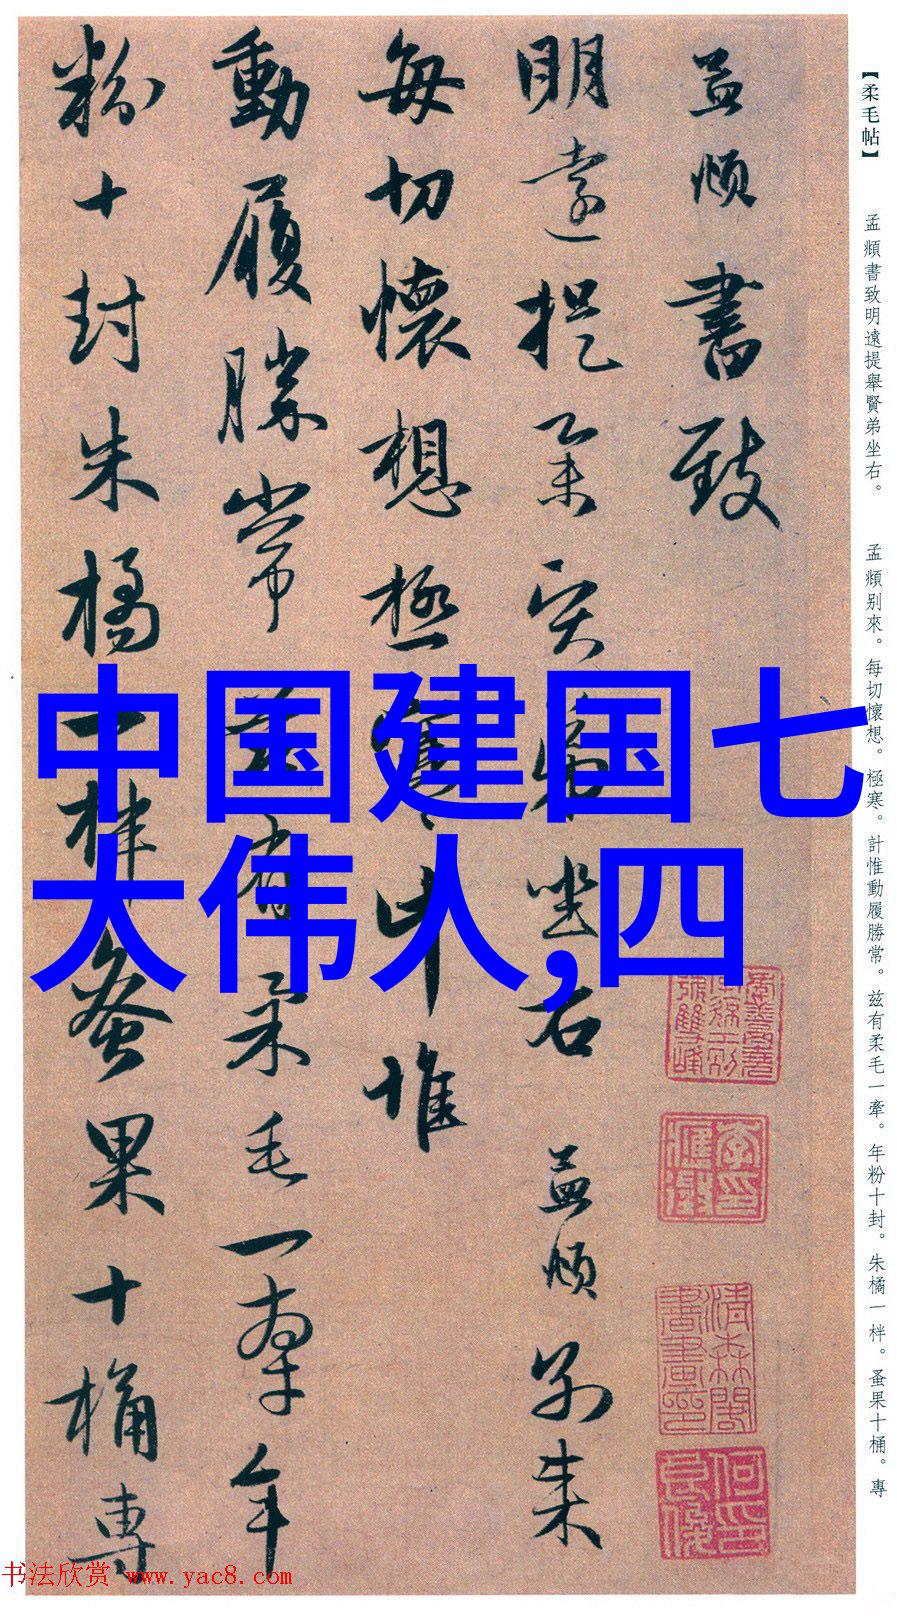 【柔毛帖】
孟頫書致明遠提舉賢弟坐右。
孟頫别來。每切懷想。極寒。計惟動履勝常。兹有柔毛一牽。年粉十封。朱橘一柈。蚤果十桶。專
孟頫書致
明遠提舉賢弟坐右 孟頫别來
每切懷想極寒計惟
動履勝常兹有柔毛一牽年
粉十封朱橘一柈蚤果十桶專
中国建国七
大伟人,四
书法欣赏 www.yac8.com